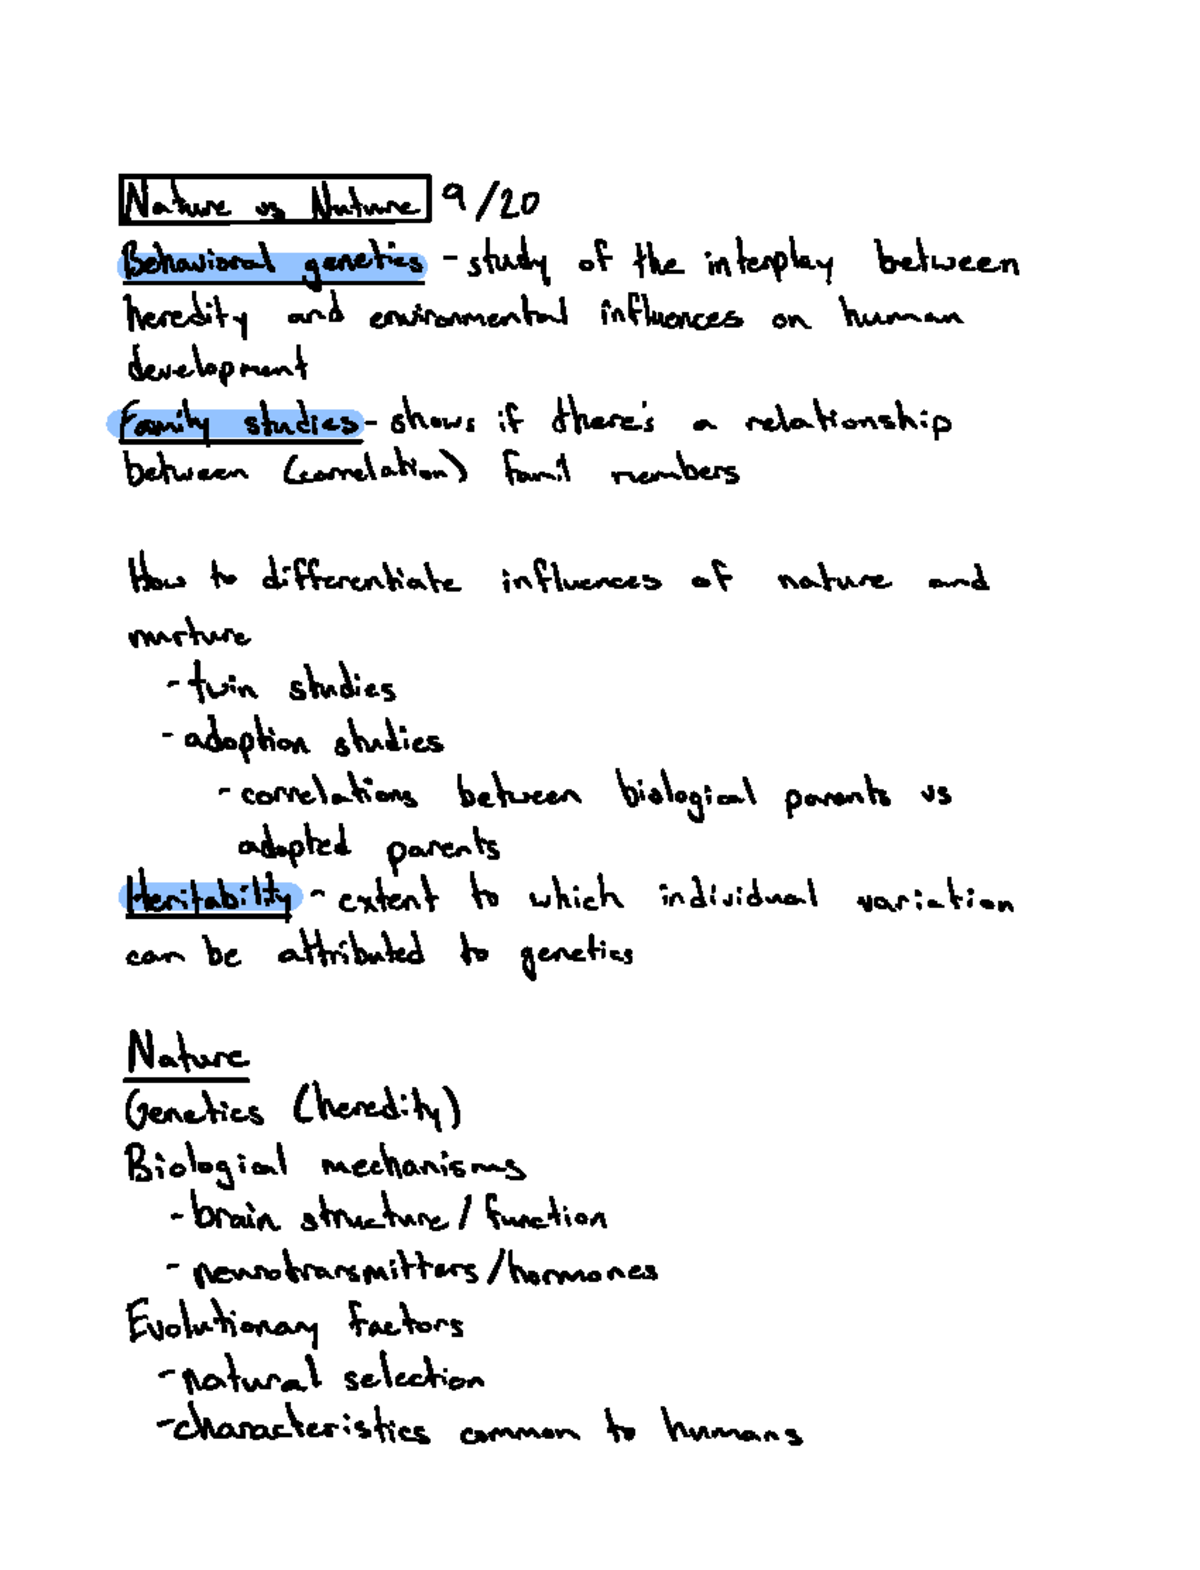 Nature vs Nuture 9/20
Behavioral genetics - study of the interplay between
heredity and environmental influences on human
development
Family studies - shows if there's a relationship
between (correlation) famil members
How to differentiate influences of nature and
nurture
- twin studies
- adoption studies
- correlations between biological parents vs
adopted parents
Heritability - extent to which individual variation
can be attributed to genetics
Nature
Genetics (heredity)
Biological mechanisms
- brain structure / function
- neurotransmitters / hormones
Evolutionary factors
- natural selection
- characteristics common to humans